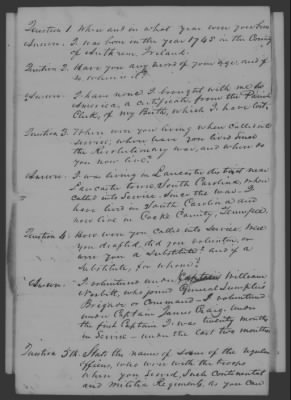 Question 1 When and in what year were you born
Answer. I was born in the year 1742 in the County
of Antrem, Ireland.
Question 2. Have you any record of your age, and if
so where is it?
Answer. I have none I brought with me to
America, a certificate, from the Parish
Clerk, of my Birth, which I have lost,
Question 3. When were you living when called into
service; where have you lived since
the Revolutionary war, and where do
you now live?
Answer. I was living in Lancaster district near
Lancaster town, South Carolina, when
called into Service Since the war I
have lived in South Carolina and
now live in Cocke County, Tennessee.
Question 4. How were you called into service, were
you drafted, did you volunteer, or
were you a Substitute? and if a
Substitute, for whom?
Answer. I volunteered under Captain William
Nesbitt, who joined General Sumpters
Brigade or Command – I volunteered
under Captain James Craig. under
the first Captain I was twenty months
in Service – under the last two months
Question 5th. State the names of some of the regular
officers, who were with the troops
when you served, Such Continental
and militia Regiments, as you can